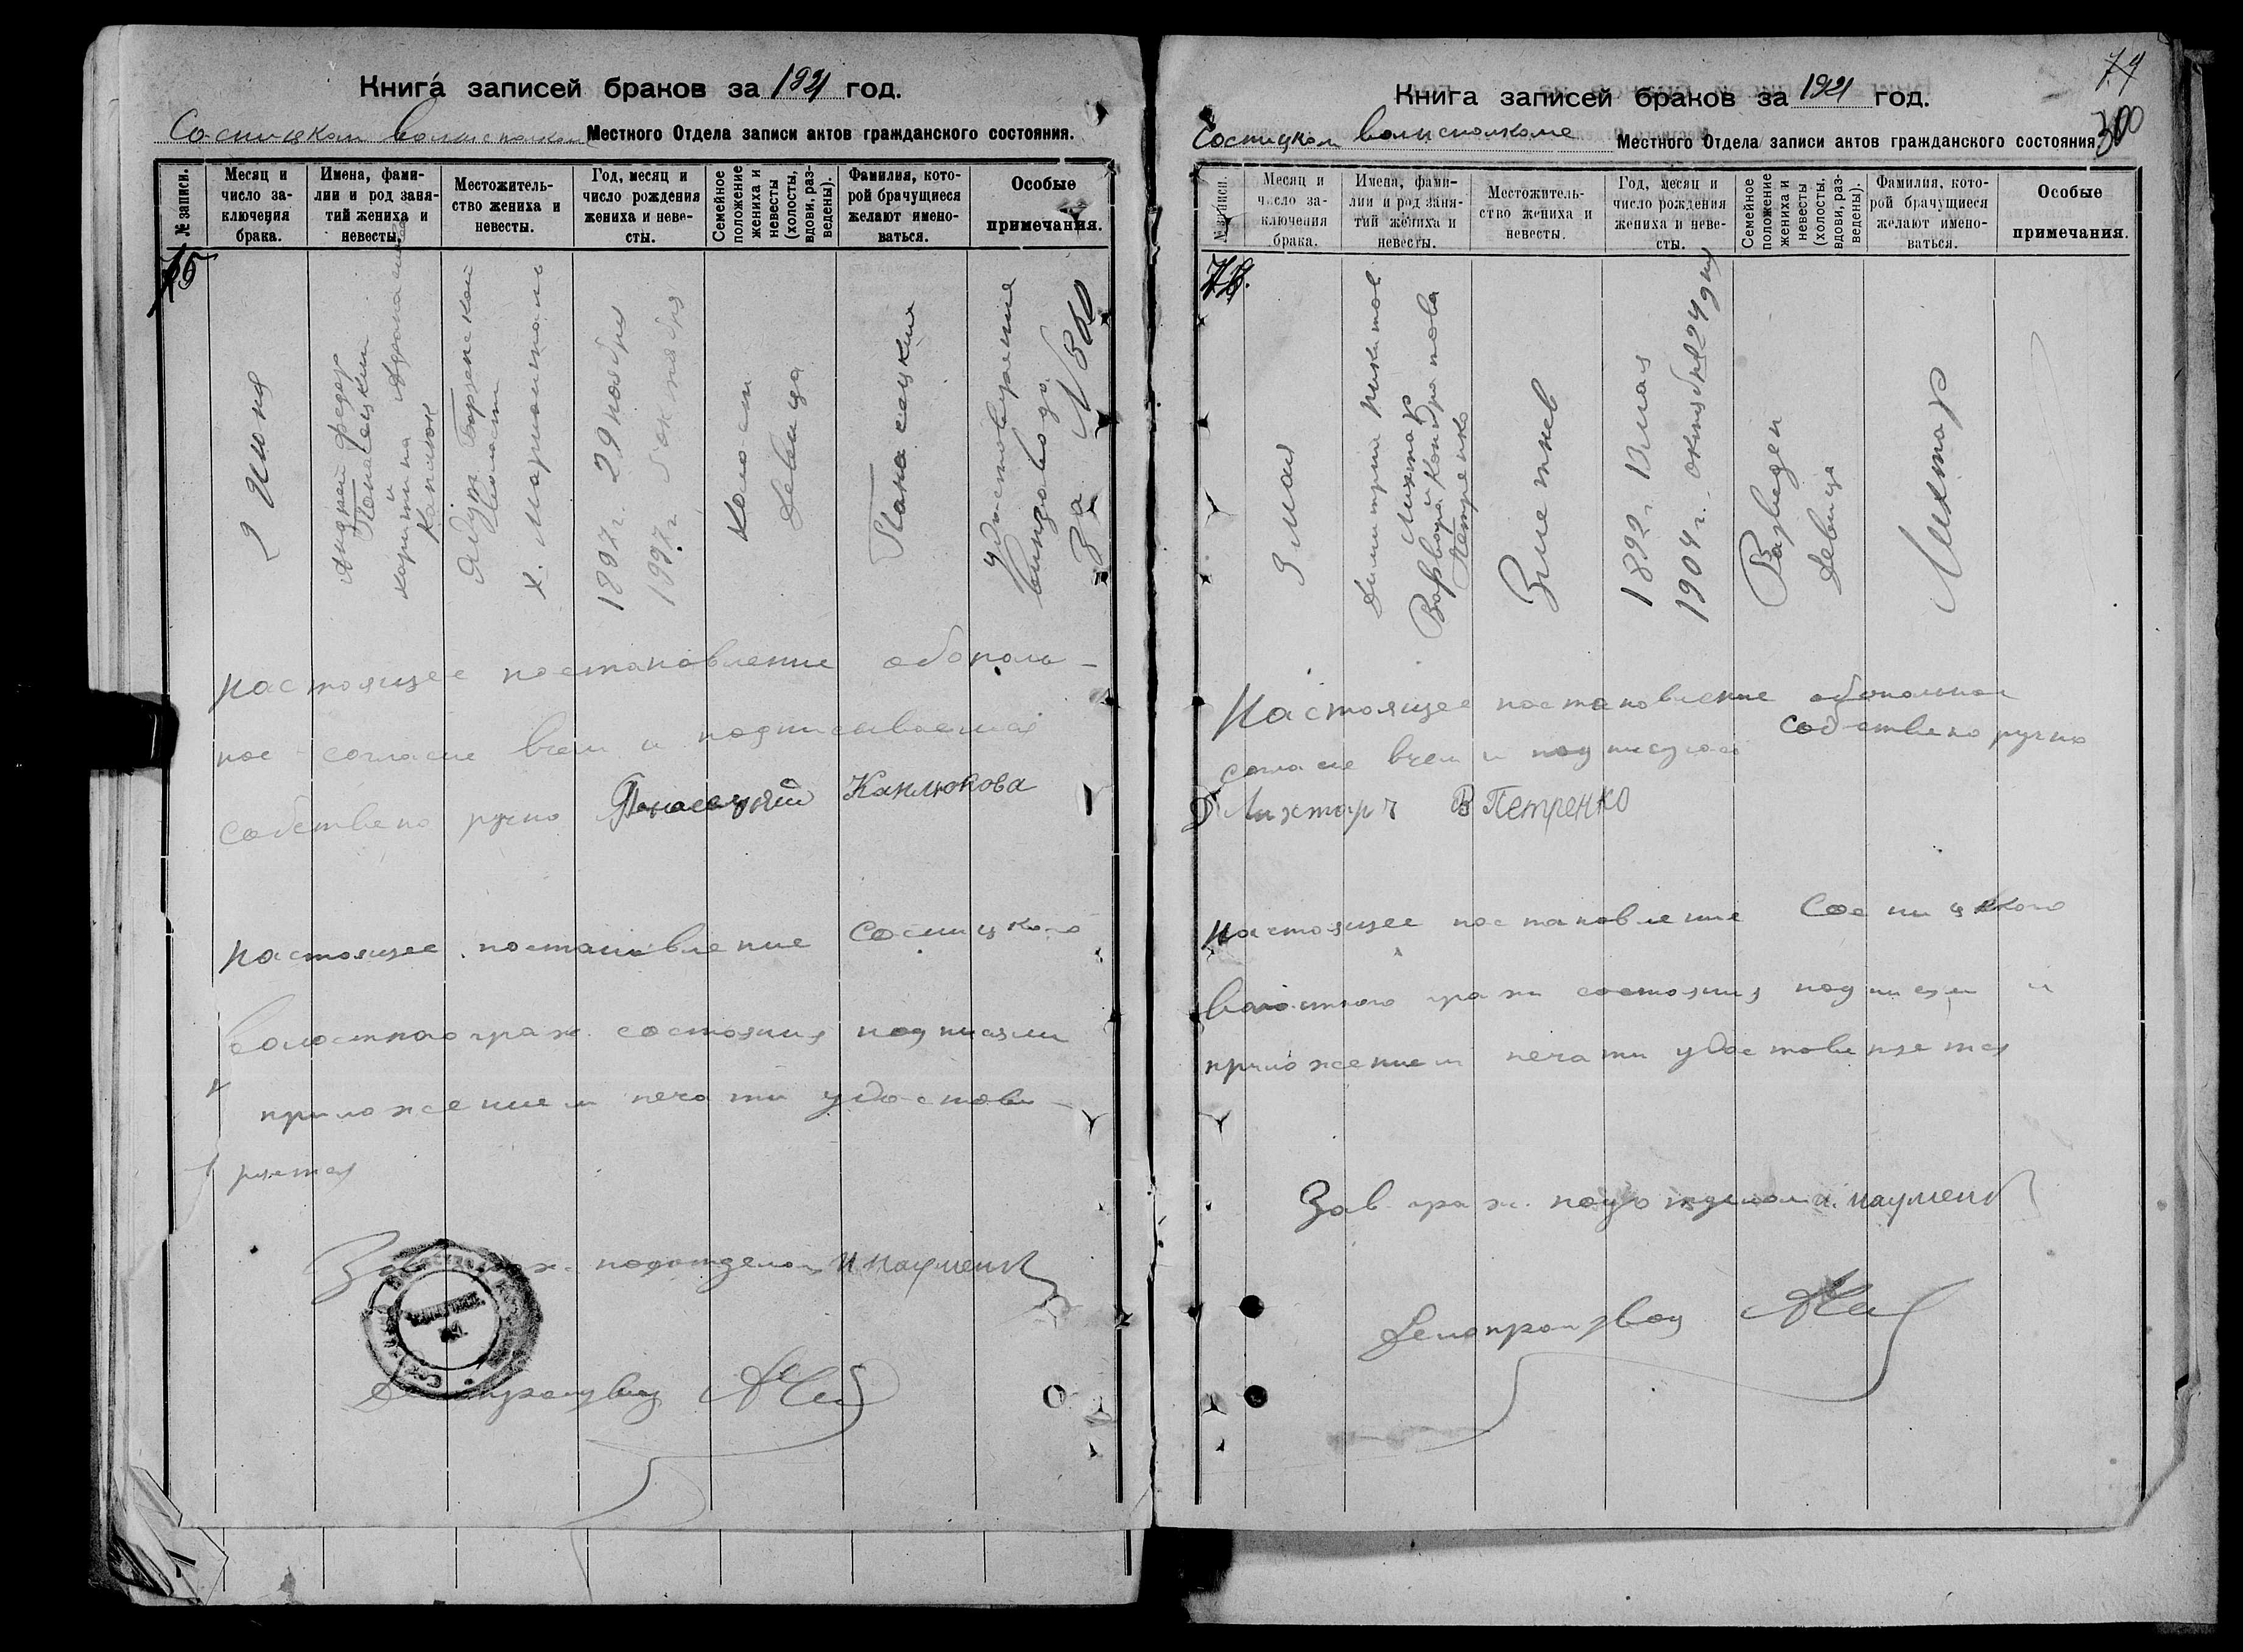 Книга записей браков за 1921 год.
Сосницком волисполкоме Местного Отдела записи актов гражданского состояния.
№ записи.
Месяц и число заключения брака.
Имена, фамилии и род занятий жениха и невесты.
Местожительство жениха и невесты.
Год, месяц и число рождения жениха и невесты.
Семейное положение жениха и невесты (холосты, вдовы, разведены).
Фамилия, которой брачущиеся желают именоваться.
Особые примечания.
75
2 Июня
Андрей Федор
Панасецкий
и
Харитина
Каплюк
Волост
х.
1897 г. 29 ноября
1997 г.
Холост
Девица
Панасецкий
удостоверение
За № 360
Настоящее постановление обополь-
ное согласие вчем и подписываемся
собствено ручно Панасецкий Каплюкова
Настоящее постановление Сосницкого
волостного граж. состояния подписями
и приложением печати удостове-
ряется
Зав. граж. подотделом И Науменко
Делопроизвод
Книга записей браков за 1921 год.
79
300
Сосницком волисполкоме Местного Отдела записи актов гражданского состояния
№ записи.
Месяц и число заключения брака.
Имена, фамилии и род занятий жениха и невесты.
Местожительство жениха и невесты.
Год, месяц и число рождения жениха и невесты.
Семейное положение жениха и невесты (холосты, вдовы, разведены).
Фамилия, которой брачущиеся желают именоваться.
Особые примечания.
9 Мая
Димитрий Никитов
Лихтар
и
Варвара Кондратова
Петренко
Зметнев
1892 г. 13 мая
1904 г. октября 24 дня
Разведен
Девица
Лихтар
Настоящее постановление обопольная
согласие вчем и подписуюсь собствено ручно
Д Лихтарь В Петренко
Настоящее постановление Сосницкого
волостного граж состояния подписями и
приложением печати удостоверяется
Зав. граж. подотделом И. Науменко
Делопроизвод